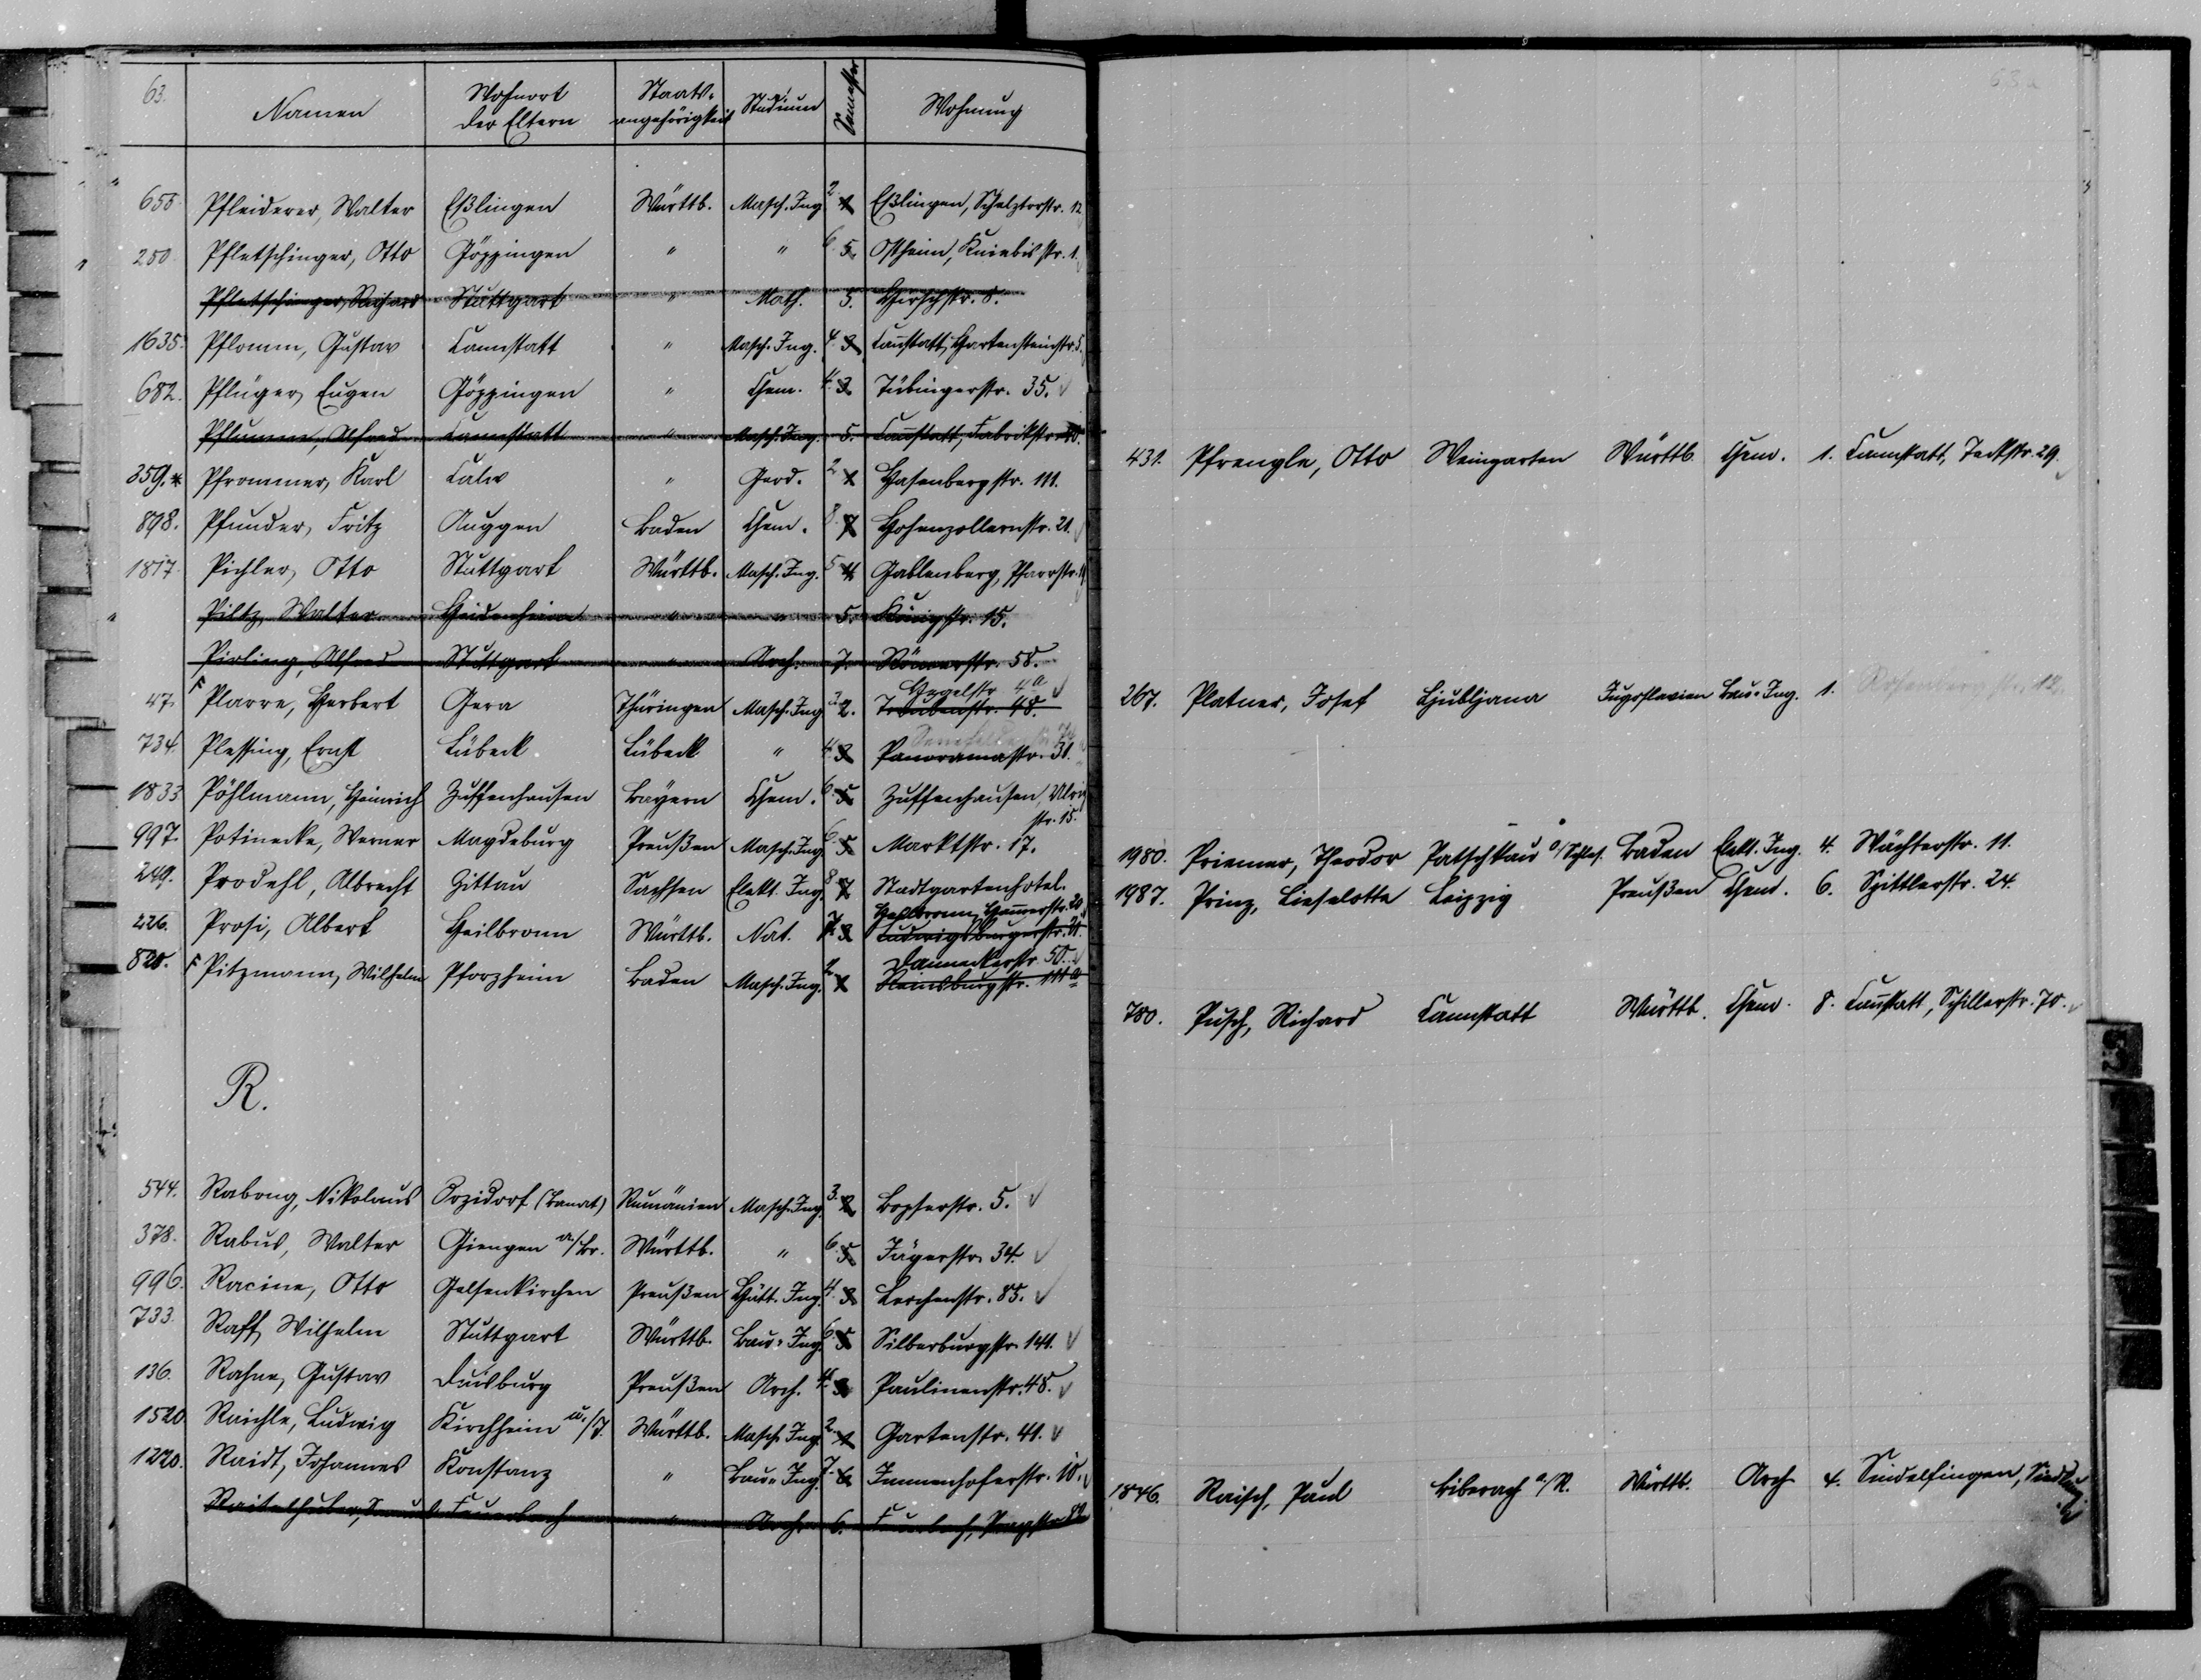 63. Namen Wohnort der Eltern Staats-angehörigkeit Studium Semester Wohnung
655. Pfleiderer, Walter Eßlingen Württb. Masch. Ing. 2. 1. Eßlingen, Schelztorstr. 12
250. Pfletschinger, Otto Göppingen " " 6. 5. Ostheim, Kniebisstr. 1.
Pfletschinger, Richard Stuttgart " Math. 5. Hirschstr. 8.
1635. Pflomm, Gustav Cannstatt " Masch. Ing. 4. 3. Cannstatt, Hartensteinstr. 5.
682. Pflüger, Eugen Göppingen " Chem. 4. 3. Tübingerstr. 35.
Pflumm, Alfred Cannstatt " Masch. Ing. 5. Cannstatt, Fabrikstr.
359.* Pfrommer, Karl Calw " Geod. 2. 1. Hasenbergstr. 111.
898. Pfunder, Fritz Auggen Baden Chem. 8. 7. Hohenzollernstr. 21.
1817. Pichler, Otto Stuttgart Württb. Masch. Ing. 5. 4. Gablenberg, Pfarrstr.
Piltz, Walter Heidenheim " " 5. Königstr. 15.
Pirling, Alfred Stuttgart " Arch. 7. Römerstr. 58.
Hegelstr. 4a
47. F Plarre, Herbert Gera Thüringen Masch. Ing. 3. 2. Traubenstr. 48.
734 Plessing, Ernst Lübeck Lübeck " 4. 3. Panoramastr. 31.
1833 Pöhlmann, Heinrich Zuffenhausen Bayern Chem. 6. 5. Zuffenhausen, Ulrich
str. 15.
997. Potinecke, Werner Magdeburg Preußen Masch. Ing. 6. 5. Marktstr. 17.
249. Prodehl, Albrecht Zittau Sachsen Elekt. Ing. 8. 7. Stadtgartenhotel.
Heilbronn, Hammerstr. 20
426. Prosi, Albert Heilbronn Württb. Nat. 7. 3. Ludwigsburgerstr. 21.
Danneckerstr. 50.
820. F Pitzmann, Wilhelm Pforzheim Baden Masch. Ing. 2. 1. Reinsburgstr. 111a
R.
544. Rabong, Nikolaus Orzidorf (Banat) Rumänien Masch. Ing. 3. 2. Bopserstr. 5.
378. Rabus, Walter Giengen a/Br. Württb. " 6. 5. Jägerstr. 34.
996. Racine, Otto Gelsenkirchen Preußen Hütt. Ing. 4. 3. Lerchenstr. 85.
733. Raff, Wilhelm Stuttgart Württb. Bau-Ing. 6. 5. Silberburgstr. 141.
136. Rahne, Gustav Duisburg Preußen Arch. 4. 3. Paulinenstr. 48.
1520 Raichle, Ludwig Kirchheim u./T. Württb. Masch. Ing. 2. 1. Gartenstr. 41.
1220. Raidt, Johannes Konstanz " Bau-Ing. 7. 6. Immenhoferstr. 10.
Raitelhuber, Feuerbach " Arch. 6. Feuerbach, Pragstr. 82
63a
431. Pfrengle, Otto Weingarten Württb. Chem. 1. Cannstatt, Teckstr. 29.
267. Platner, Josef Ljubljana Jugoslavien Bau-Ing. 1. Rosenbergstr. 12.
1980. Priemer, Theodor Patschkau o/Schles. Baden Elekt. Ing. 4. Wächterstr. 11.
1987. Prinz, Lieselotte Leipzig Preußen Chem. 6. Spittlerstr. 24.
780. Pusch, Richard Cannstatt Württb. Chem. 8. Cannstatt, Schillerstr. 70.
1846. Raisch, Paul Biberach a/R. Württb. Arch 4. Sindelfingen,